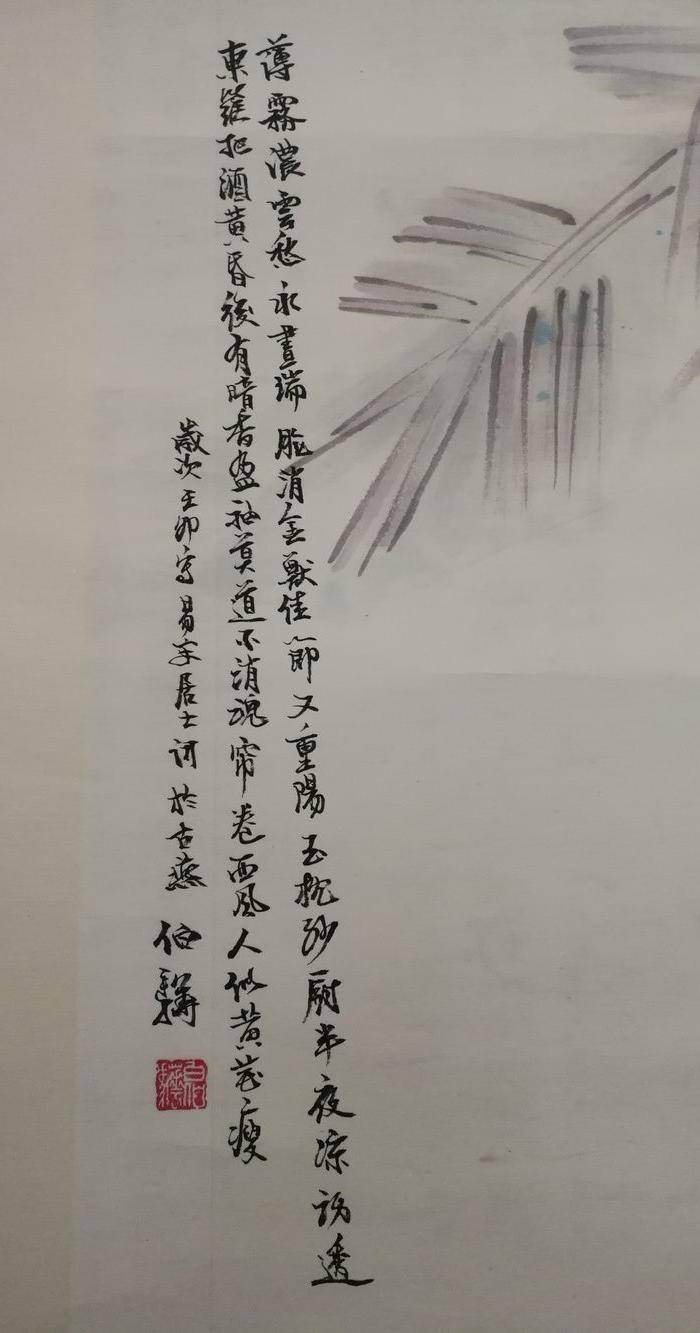 薄霧濃雲愁永晝瑞腦消金獸佳節又重陽玉枕紗厨半夜凉初透
東籬把酒黄昏後有暗香盈袖莫道不消魂帘卷西風人似黄花瘦
歲次壬卯寫易安居士词於古燕 伯